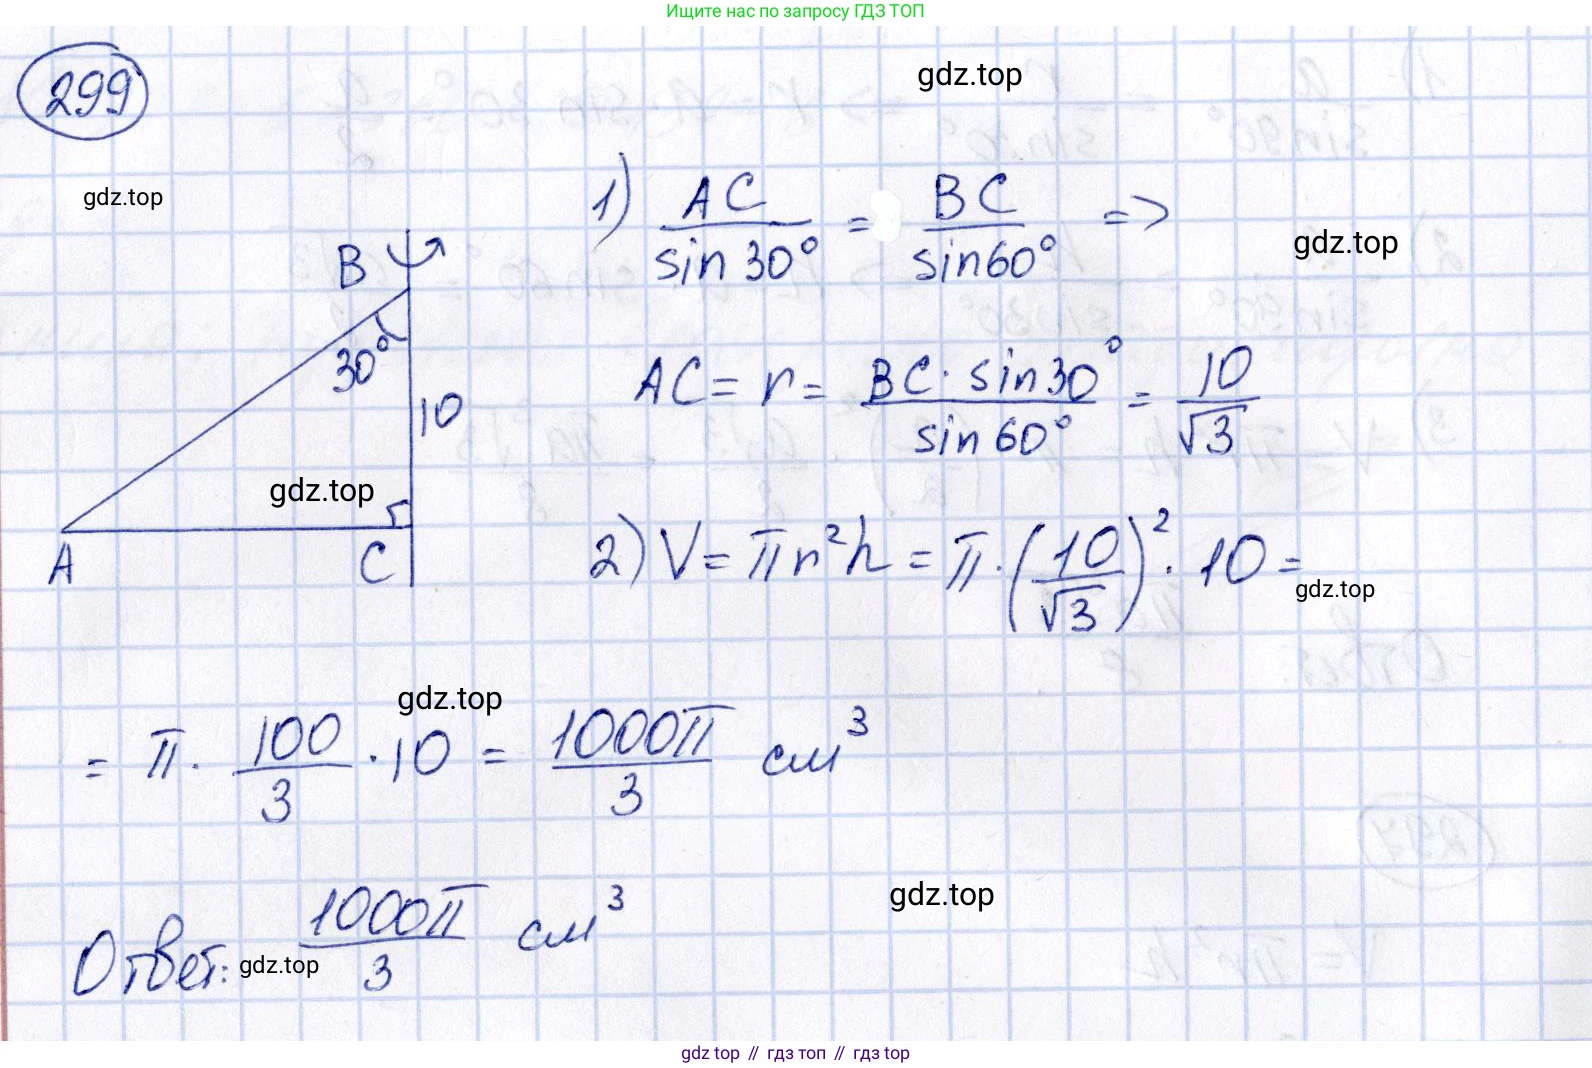 Ищите нас по запросу ГДЗ ТОП
299
gdz.top
gdz.top
1) AC/sin 30° = BC/sin 60° =>
gdz.top
B
30°
10
A
C
gdz.top
AC = r = BC · sin 30°/sin 60° = 10/√3
2) V = πr²h = π · (10/√3)² · 10 =
gdz.top
gdz.top
= π · 100/3 · 10 = 1000π/3 см³
gdz.top
Ответ: 1000π/3 см³
gdz.top
gdz.top // гдз топ // гдз top